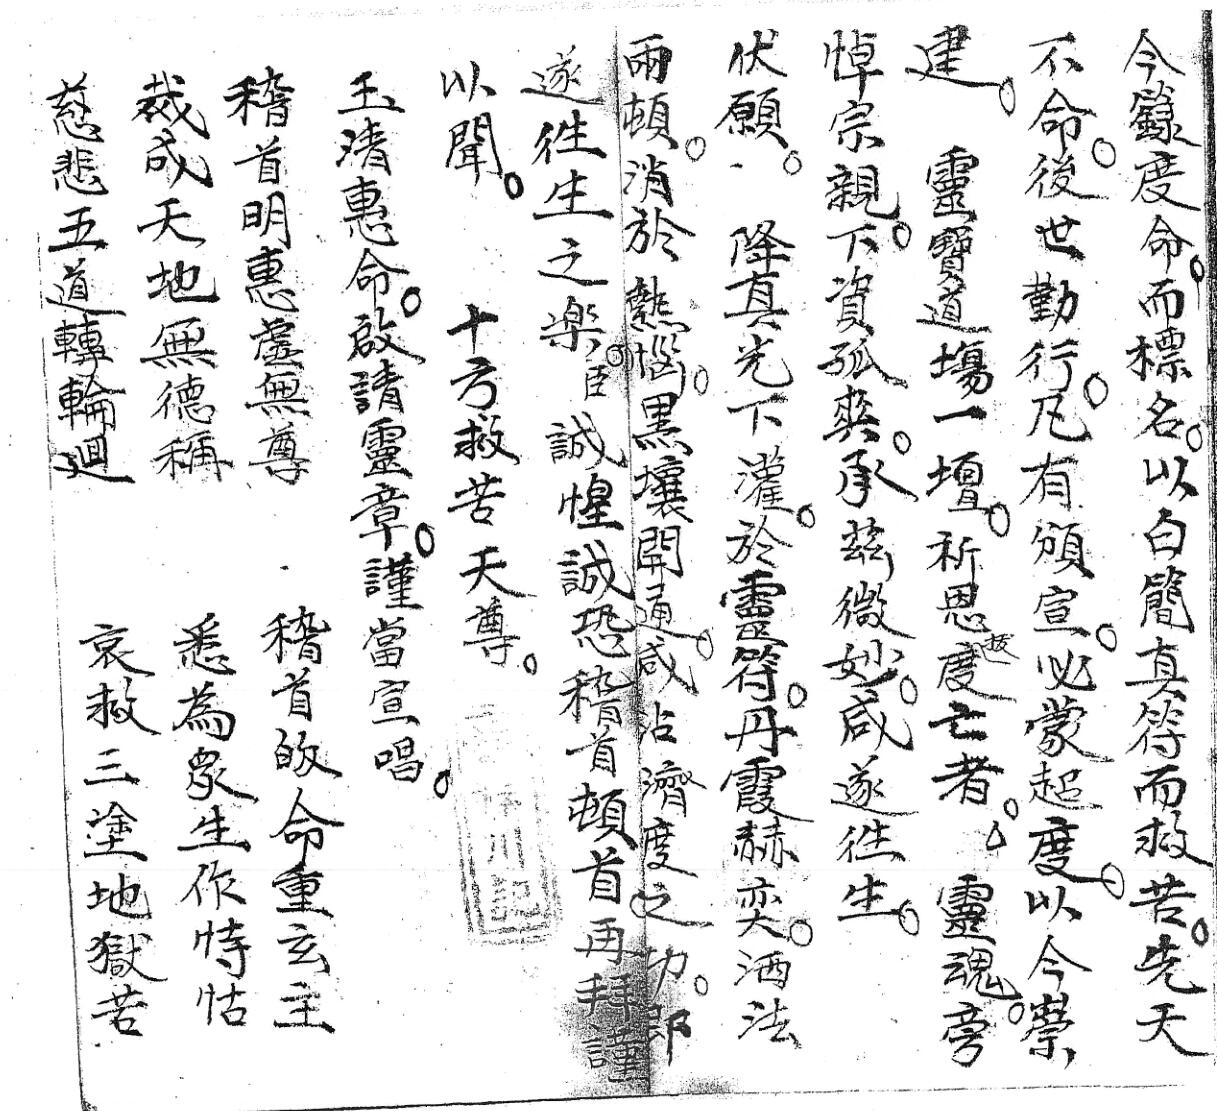 今籙度命而標名以白簡真符而救苦先天
不命後世勤行凡有頒宣必蒙超度以今縈
建 靈寶道場一壇祈恩度亡者 靈魂旁
拔
悼宗親下資孤爽承茲微妙咸遂往生
伏願 降真光下灌於靈符丹霞赫奕洒法
雨頓消於熱惱黑壤開通咸沾濟度之功即
遂往生之楽臣誠惶誠恐稽首頓首再拜謹
以聞 十方救苦天尊
玉清惠命啟請靈章謹當宣唱
稽首明惠虛無尊 稽首皈命重玄主
裁成天地無德稱 悉為衆生作恃怙
慈悲五道轉輪迴 哀救三塗地獄苦